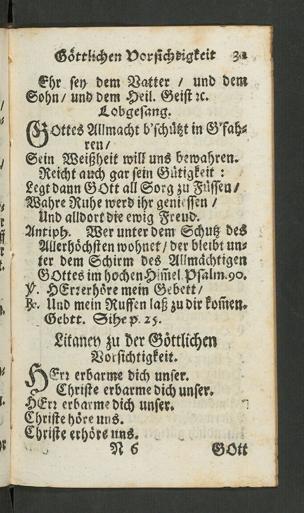 Göttlichen Vorsichtigkeit
Ehr sey dem Vatter / und dem
Sohn / und dem Heil. Geist ꝛc.
Lobgesang.
GOttes Allmacht b'schützt in G'fah-
ren /
Sein Weißheit will uns bewahren.
Reicht auch gar sein Gütigkeit :
Legt dann GOtt all Sorg zu Füssen /
Wahre Ruhe werd ihr geniessen /
Und alldort die ewig Freud.
Antiph. Wer unter dem Schutz des
Allerhöchsten wohnet / der bleibt un-
ter dem Schirm des Allmächtigen
GOttes im hochen Him̃el. Psalm. 90.
℣. HErr erhöre mein Gebett /
℟. Und mein Ruffen laß zu dir kom̃en.
Gebtt. Sihe p. 25.
Litaney zu der Göttlichen
Vorsichtigkeit.
HErr erbarme dich unser.
Christe erbarme dich unser.
HErr erbarme dich unser.
Christe höre uns.
Christe erhöre uns.
N 6 GOtt